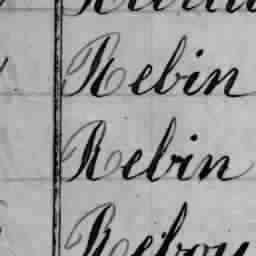 Rebin
Rebin
Reboy